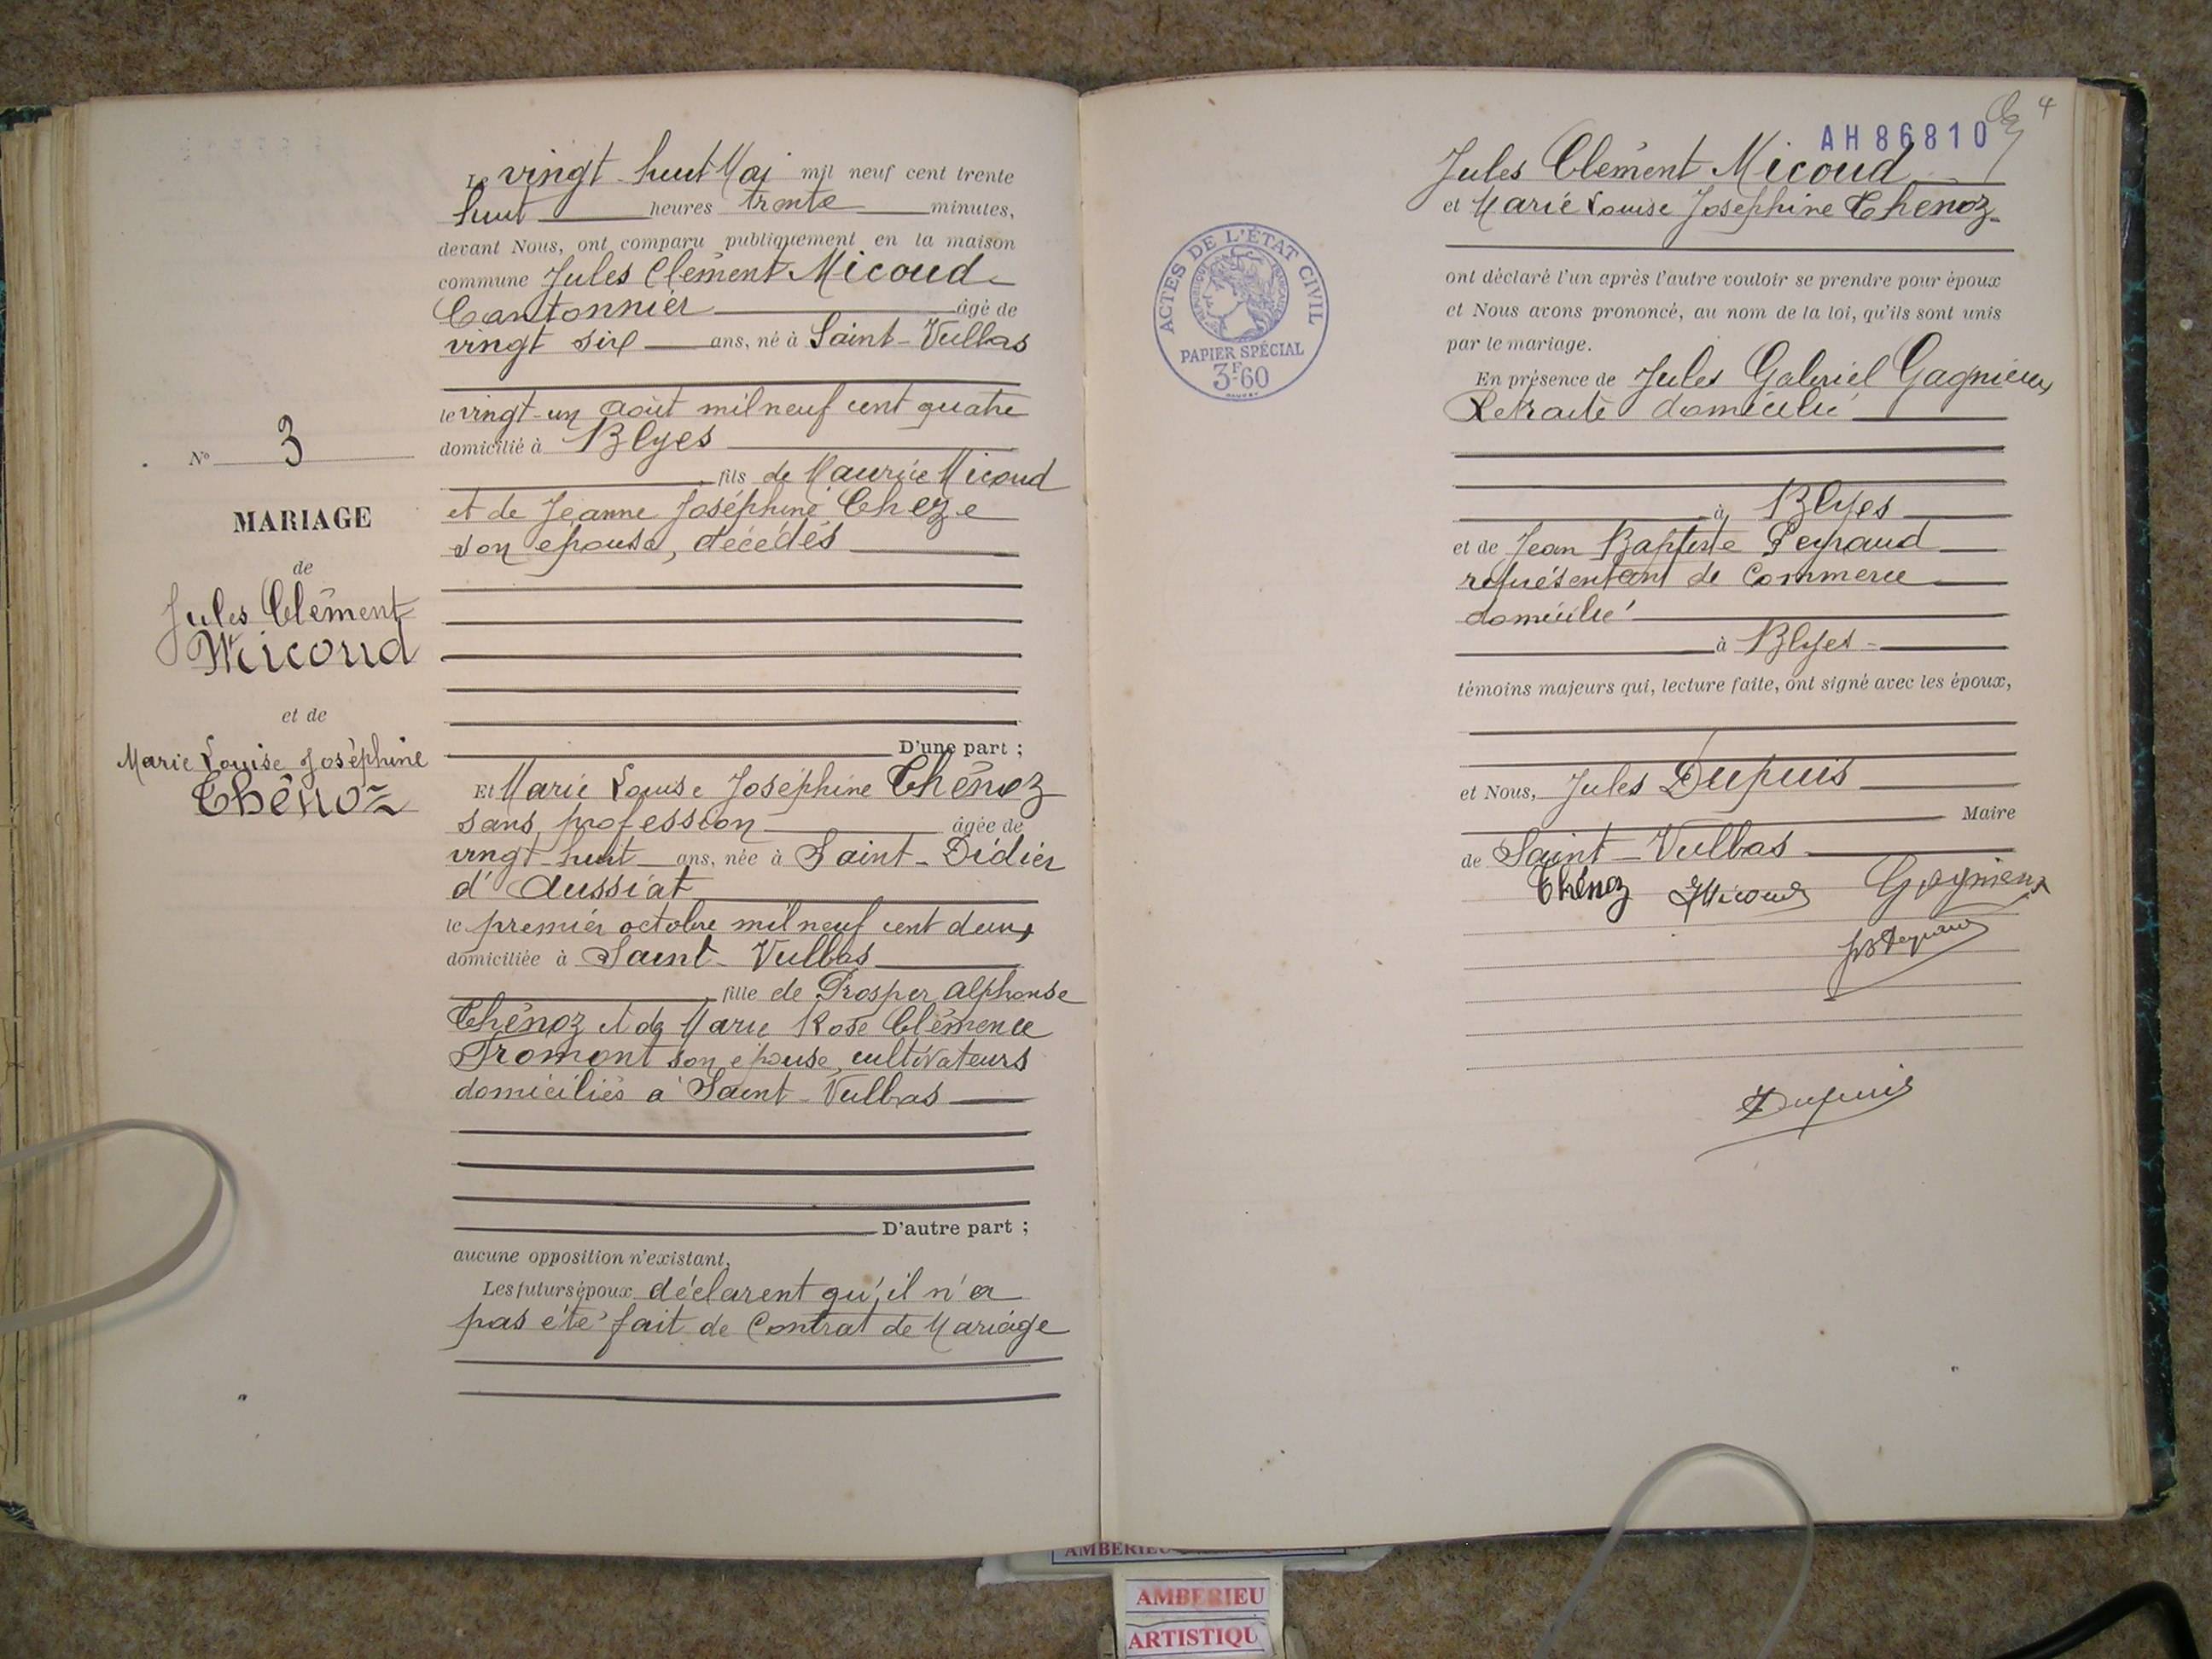 Le vingt-huit Mai mil neuf cent trente
huit heures trente minutes,
devant Nous, ont comparu publiquement en la maison
commune Jules Clément Micoud
Cantonnier âgé de
vingt six ans, né à Saint-Vulbas
le vingt-un août mil neuf cent quatre
domicilié à Blyes
fils de Maurice Micoud
et de Jeanne Joséphine Cheze
son épouse, décédés
D'une part ;
Et Marie Louise Joséphine Thénoz
sans profession âgée de
vingt-huit ans, née à Saint-Didier
d'Aussiat
le premier octobre mil neuf cent deux
domiciliée à Saint-Vulbas
fille de Prosper Alphonse
Thénoz et de Marie Rose Clémence
Fromont son épouse, cultivateurs
domiciliés à Saint-Vulbas
D'autre part ;
aucune opposition n'existant,
Les futurs époux déclarent qu'il n'a
pas été fait de Contrat de Mariage
N° 3
MARIAGE
de
Jules Clément
Micoud
et de
Marie Louise Joséphine
Thénoz
4
AH86810
Jules Clément Micoud
et Marie Louise Josephine Thenoz
ont déclaré l'un après l'autre vouloir se prendre pour époux
et Nous avons prononcé, au nom de la loi, qu'ils sont unis
par le mariage.
En présence de Jules Gabriel Gagnieux
Retraité domicilié
à Blyes
et de Jean Baptiste Peyraud
représentant de Commerce
domicilié
à Blyes
témoins majeurs qui, lecture faite, ont signé avec les époux,
et Nous, Jules Dupuis
Maire
de Saint-Vulbas
Thénoz Micoud Gagnieux
JB Peyraud
Dupuis
ACTES DE L'ÉTAT CIVIL
PAPIER SPÉCIAL
3F60
AMBERIEU
AMBERIEU
ARTISTIQU